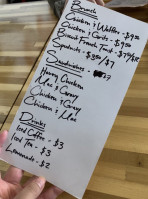 Brunch
Chicken & Waffles - $9.50
Chicken & Grits - $9.50
Biscuit French Toast -
Spudnuts - $3.50/$7
Sandwiches -
Honey Chicken
Mac & Gravy
Chicken & Gravy
Chicken & Mac
Drinks
Iced Coffee - $3
Iced Tea - $3
Lemonade - $2